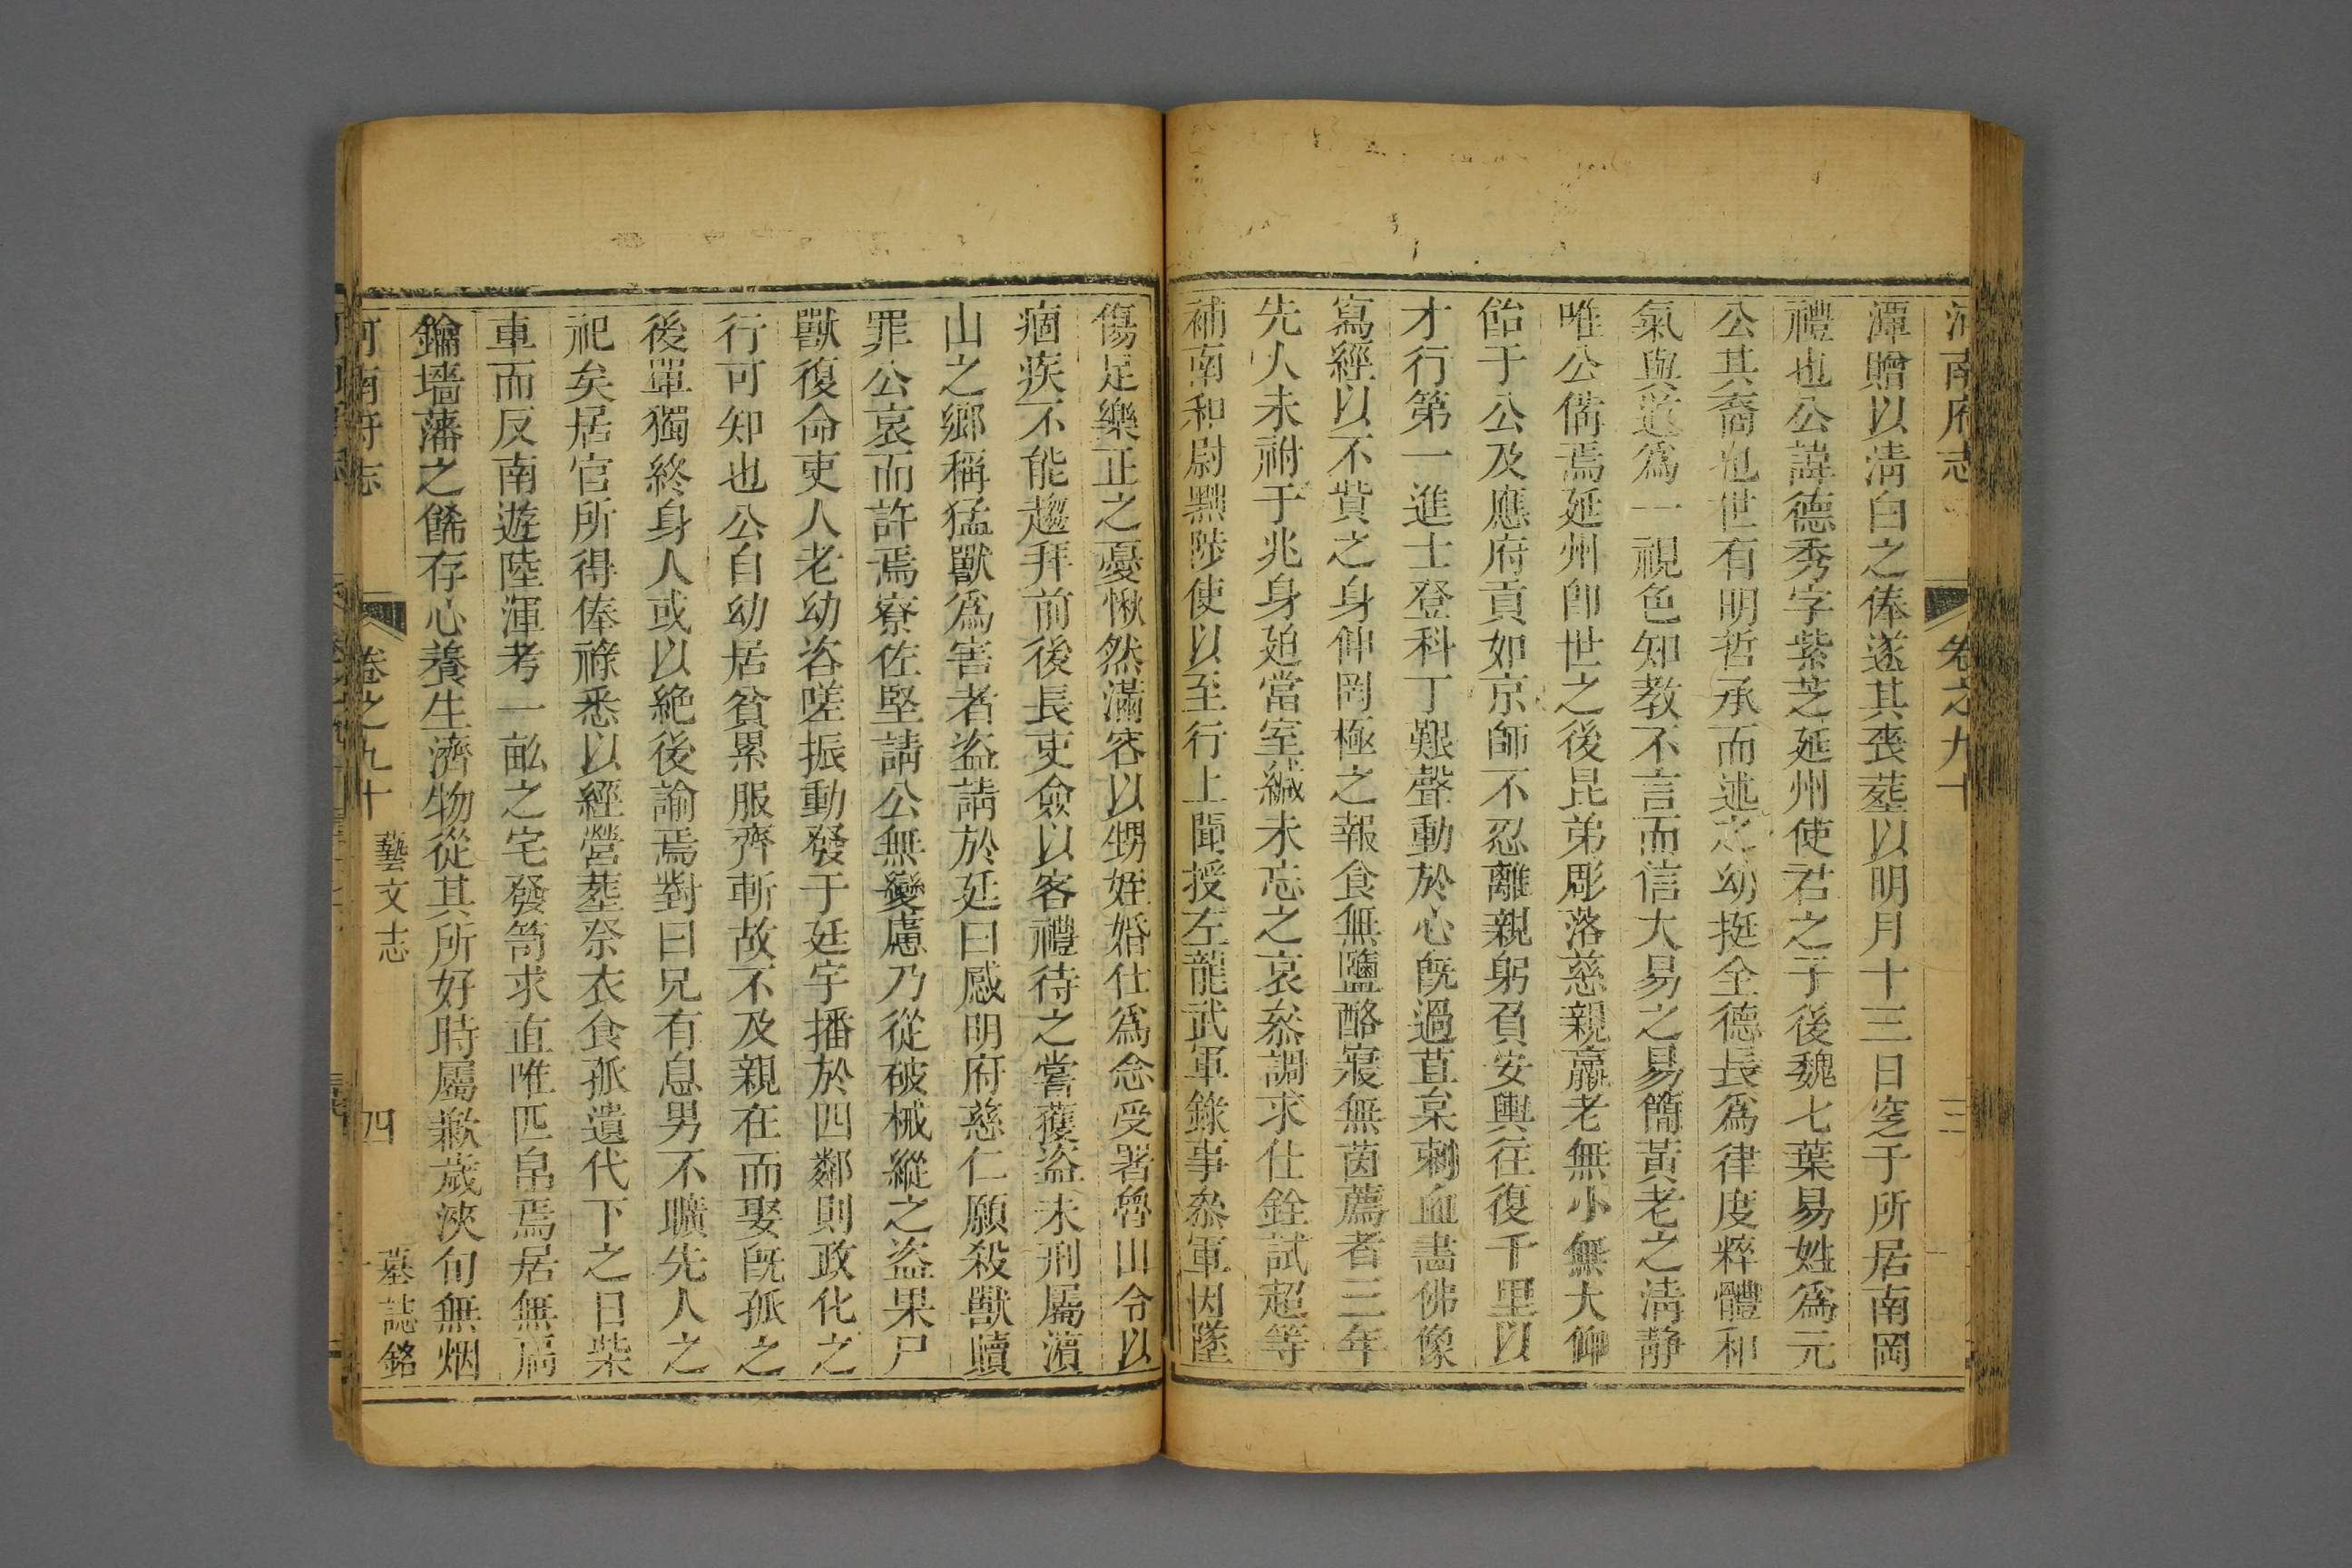 河南府志
卷之九十
三
潭贈以清白之俸遂其喪塟以明月十三日窆于所居南岡
禮也公諱德秀字紫芝延州使君之子後魏七葉易姓爲元
公其裔也世有明哲承而述之幼挺全德長爲律度粹體和
氣與道爲一視色知教不言而信大易之易簡黃老之清靜
唯公偹焉延州卽世之後昆弟彫落慈親羸老無小無大仰
飴于公及應府貢如京師不忍離親躬負安輿往復千里以
才行第一進士登科丁艱聲動於心旣過苴枲刺血畵佛像
寫經以不貲之身伸罔極之報食無鹽酪寢無茵薦者三年
先人未祔于兆身廹當室緘未忘之哀叅調求仕銓試超等
補南和尉黜陟使以至行上聞授左龍武軍錄事叅軍因墜
傷足樂正之憂愀然滿容以甥姪婚仕爲念受署魯山令以
痼疾不能趨拜前後長吏僉以客禮待之嘗獲盜未刑屬濵
山之鄉稱猛獸爲害者盜請於廷曰感明府慈仁願殺獸贖
罪公哀而許焉寮佐堅請公無變慮乃從破械縱之盜果尸
獸復命吏人老幼咨嗟振動發于廷宇播於四鄰則政化之
行可知也公自幼居貧累服齊斬故不及親在而娶旣孤之
後單獨終身人或以絶後諭焉對曰兄有息男不曠先人之
祀矣居官所得俸祿悉以經營塟祭衣食孤遺代下之日柴
車而反南遊陸渾考一畝之宅發笥求直唯匹帛焉居無扃
鑰墻藩之餙存心養生濟物從其所好時屬歉歲浹旬無烟
河南府志
卷之九十
藝文志
四
墓誌銘